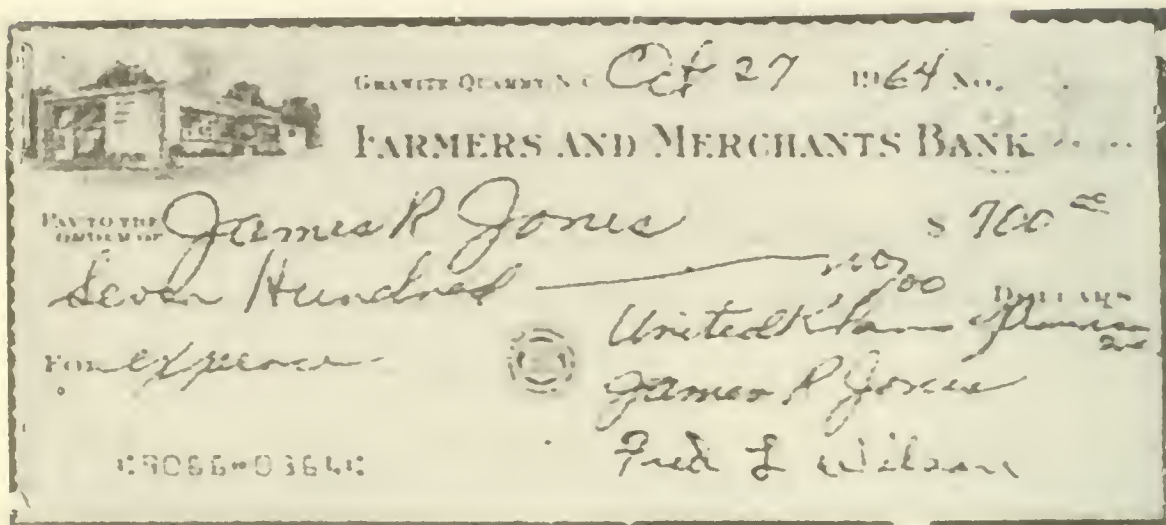 GRANITE QUARRY, N. C. Oct 27 1964 NO.
FARMERS AND MERCHANTS BANK
PAY TO THE ORDER OF James R Jones $ 700 00
Seven Hundred no/00 DOLLARS
FOR expense
United Klans America Inc
James R Jones
Fred L Wilson